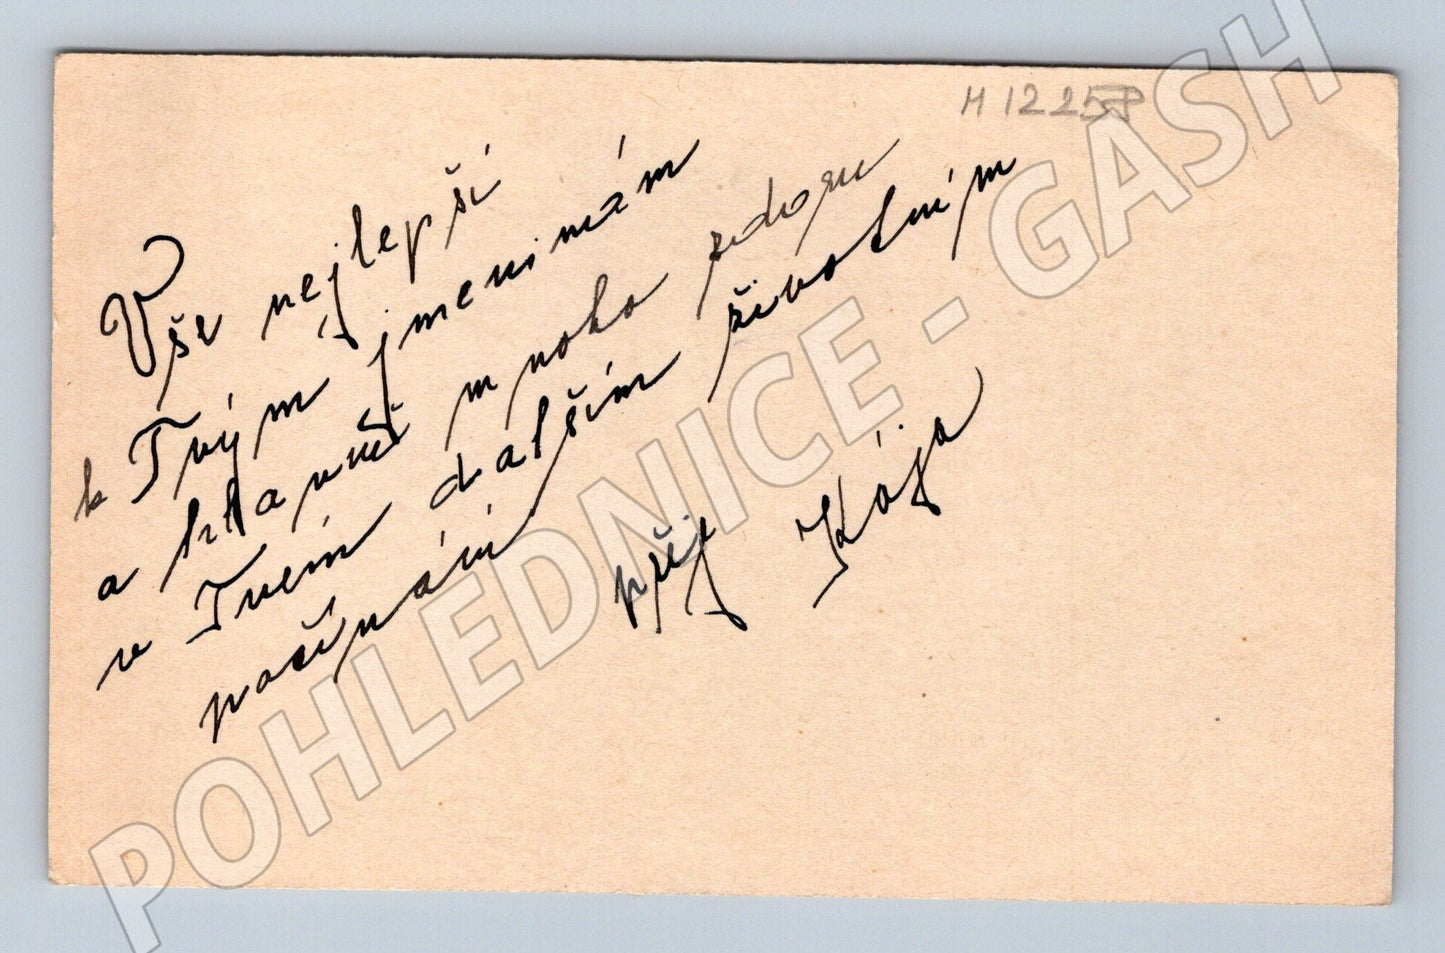 H 12258
Vše nejlepší
k Tvým jmeninám
a hlavně mnoho zdaru
v Tvém dalším životním
počínání
přeje Kája
POHLEDNICE - GASH